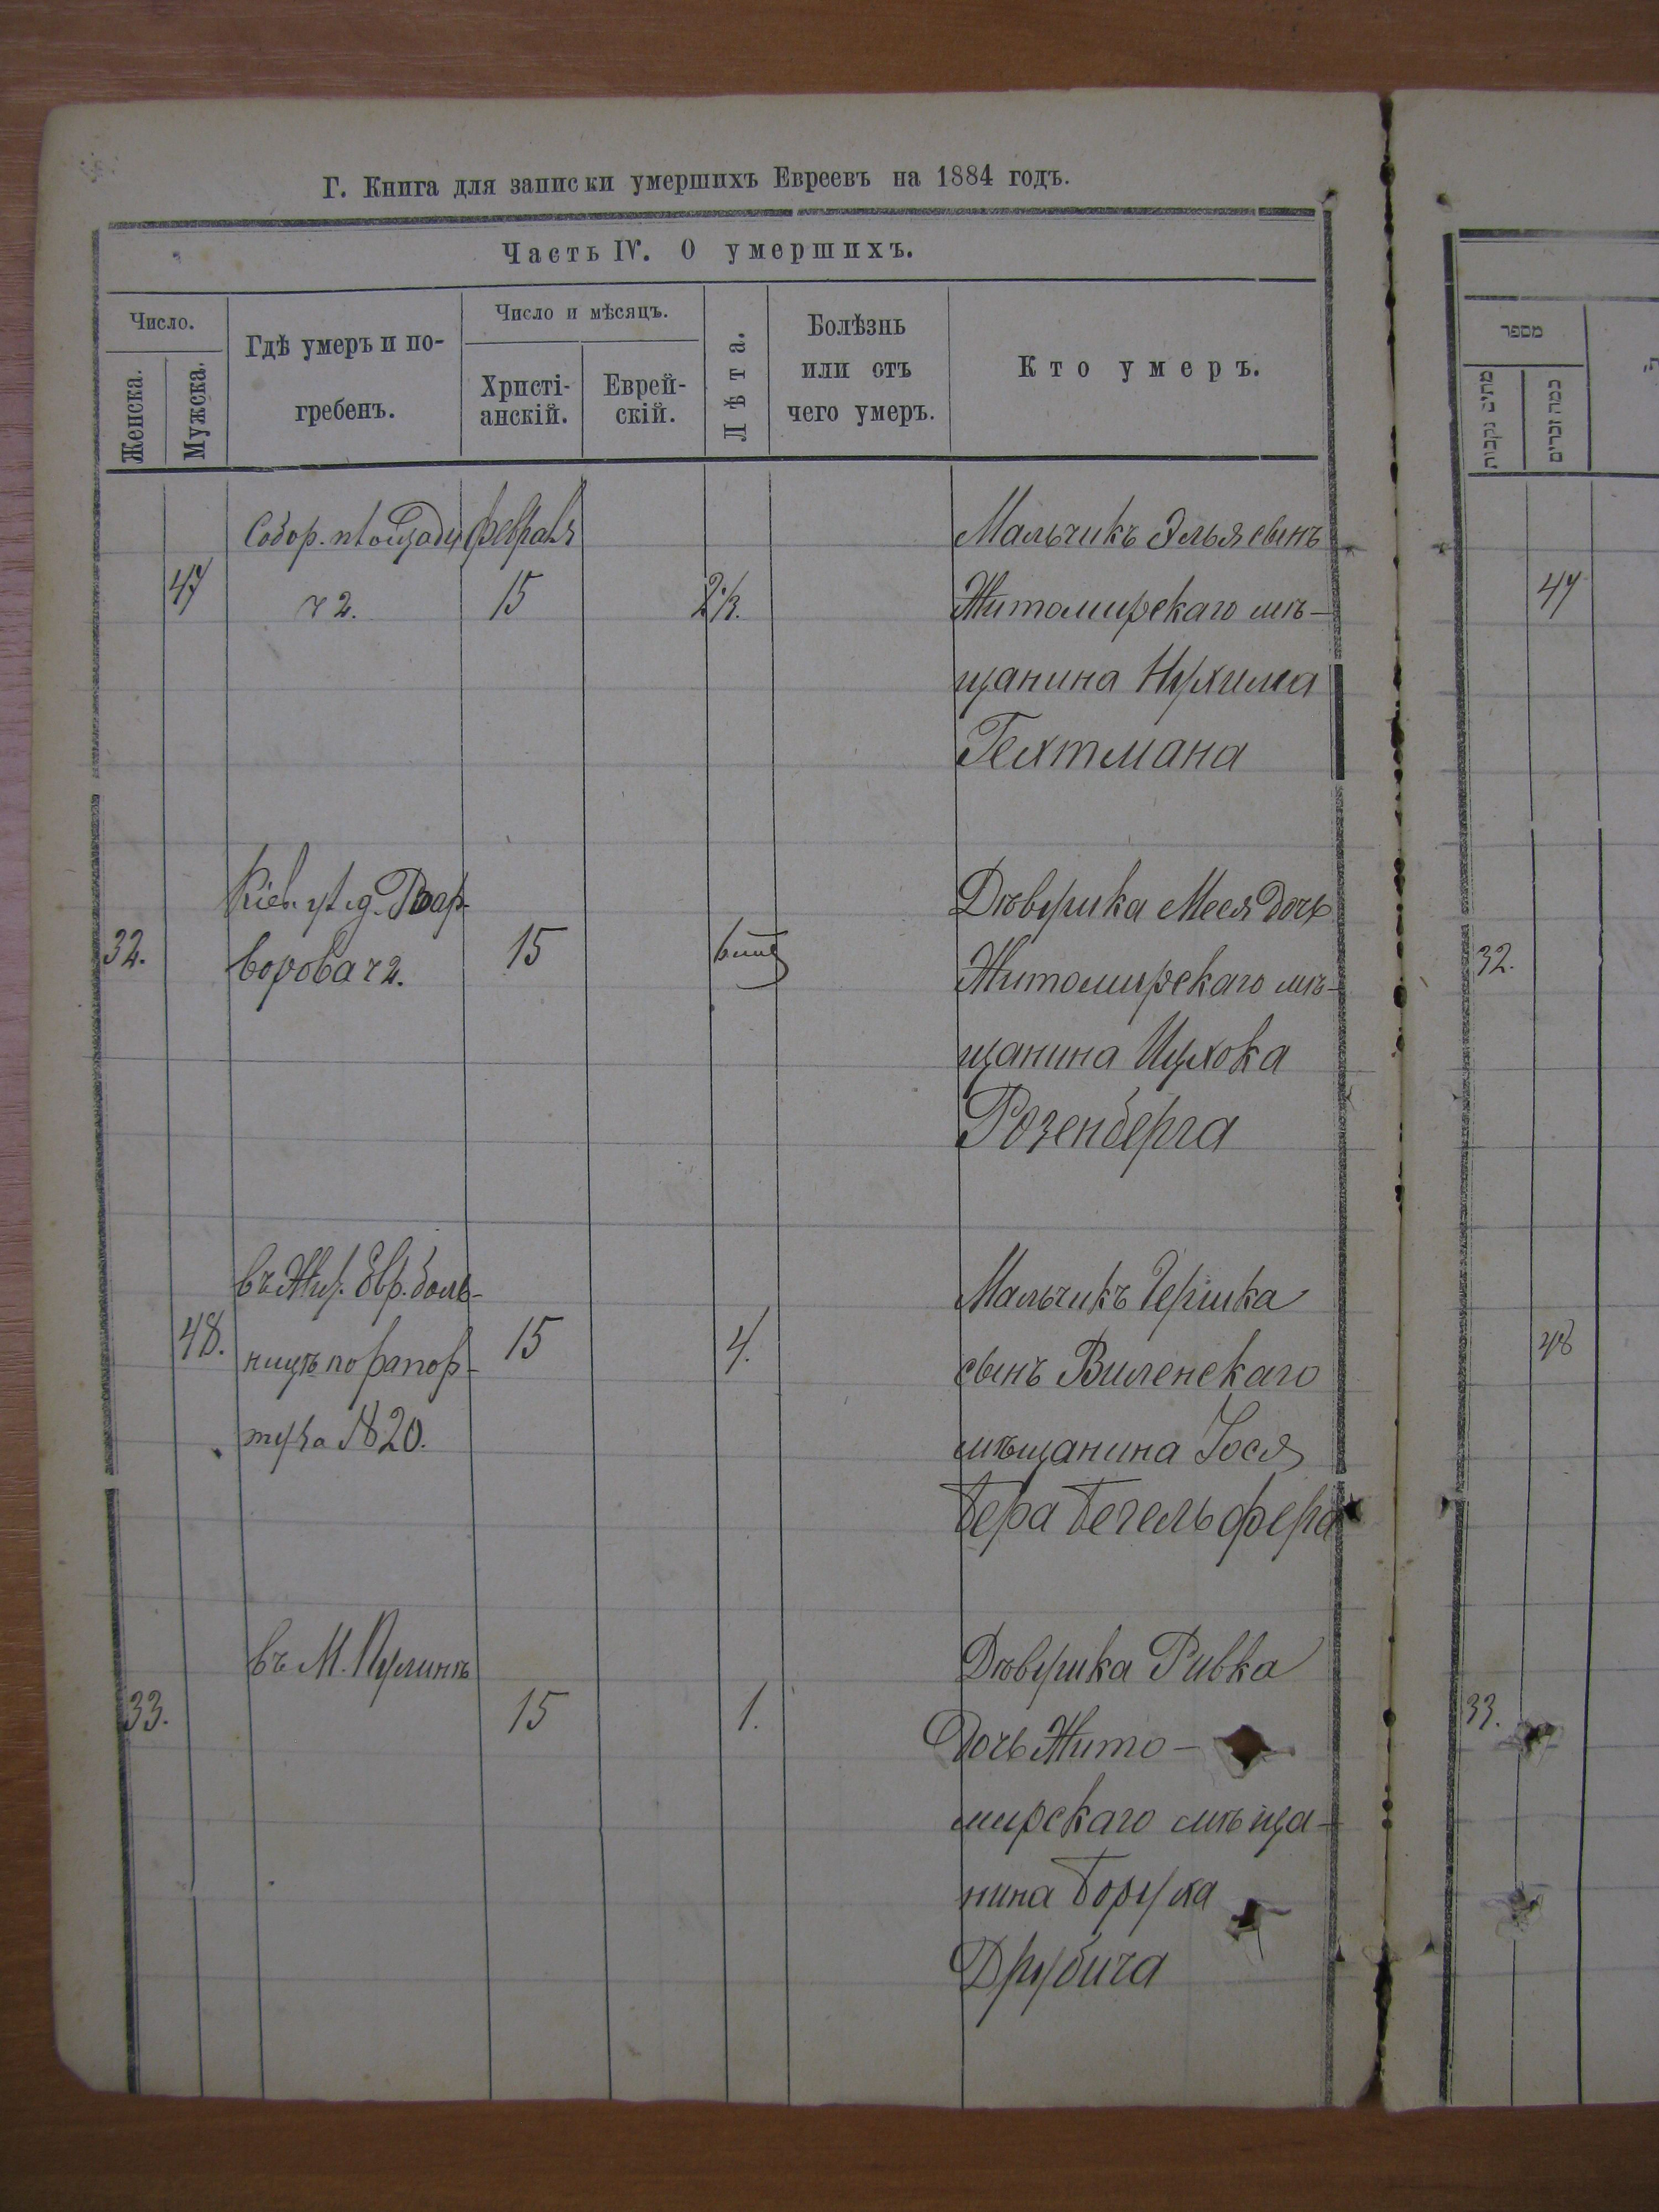 Г. Книга для записки умершихъ Евреевъ на 1884 годъ.
Часть IV. О умершихъ.
Число.
Женска.
Мужска.
Гдѣ умеръ и по-
гребенъ.
Число и мѣсяцъ.
Христі-
анскій.
Еврей-
скій.
Лѣта.
Болѣзнь
или отъ
чего умеръ.
Кто умеръ.
מספר
מתים נקבות
כמה זכרים
47
Собор. площади
ч 2.
февраля
15
Мальчикъ Элья сынъ
Житомирскаго мѣ-
щанина Нухима
Гехтмана
47
32.
Кіев. ул. д.
ворова ч 2.
15
Дѣвушка Меся дочь
Житомирскаго мѣ-
щанина Ицхока
Розенберга
32.
48.
въ Жит. Евр. боль-
ницѣ по рапор-
ту за № 20.
15
4.
Мальчикъ Гершка
сынъ Виленскаго
мѣщанина Іося
Бера Бегельфера
48
33.
въ М. Пулинѣ
15
1.
Дѣвушка Ривка
Дочь Жито-
мирскаго мѣща-
нина Боруха
Друбича
33.